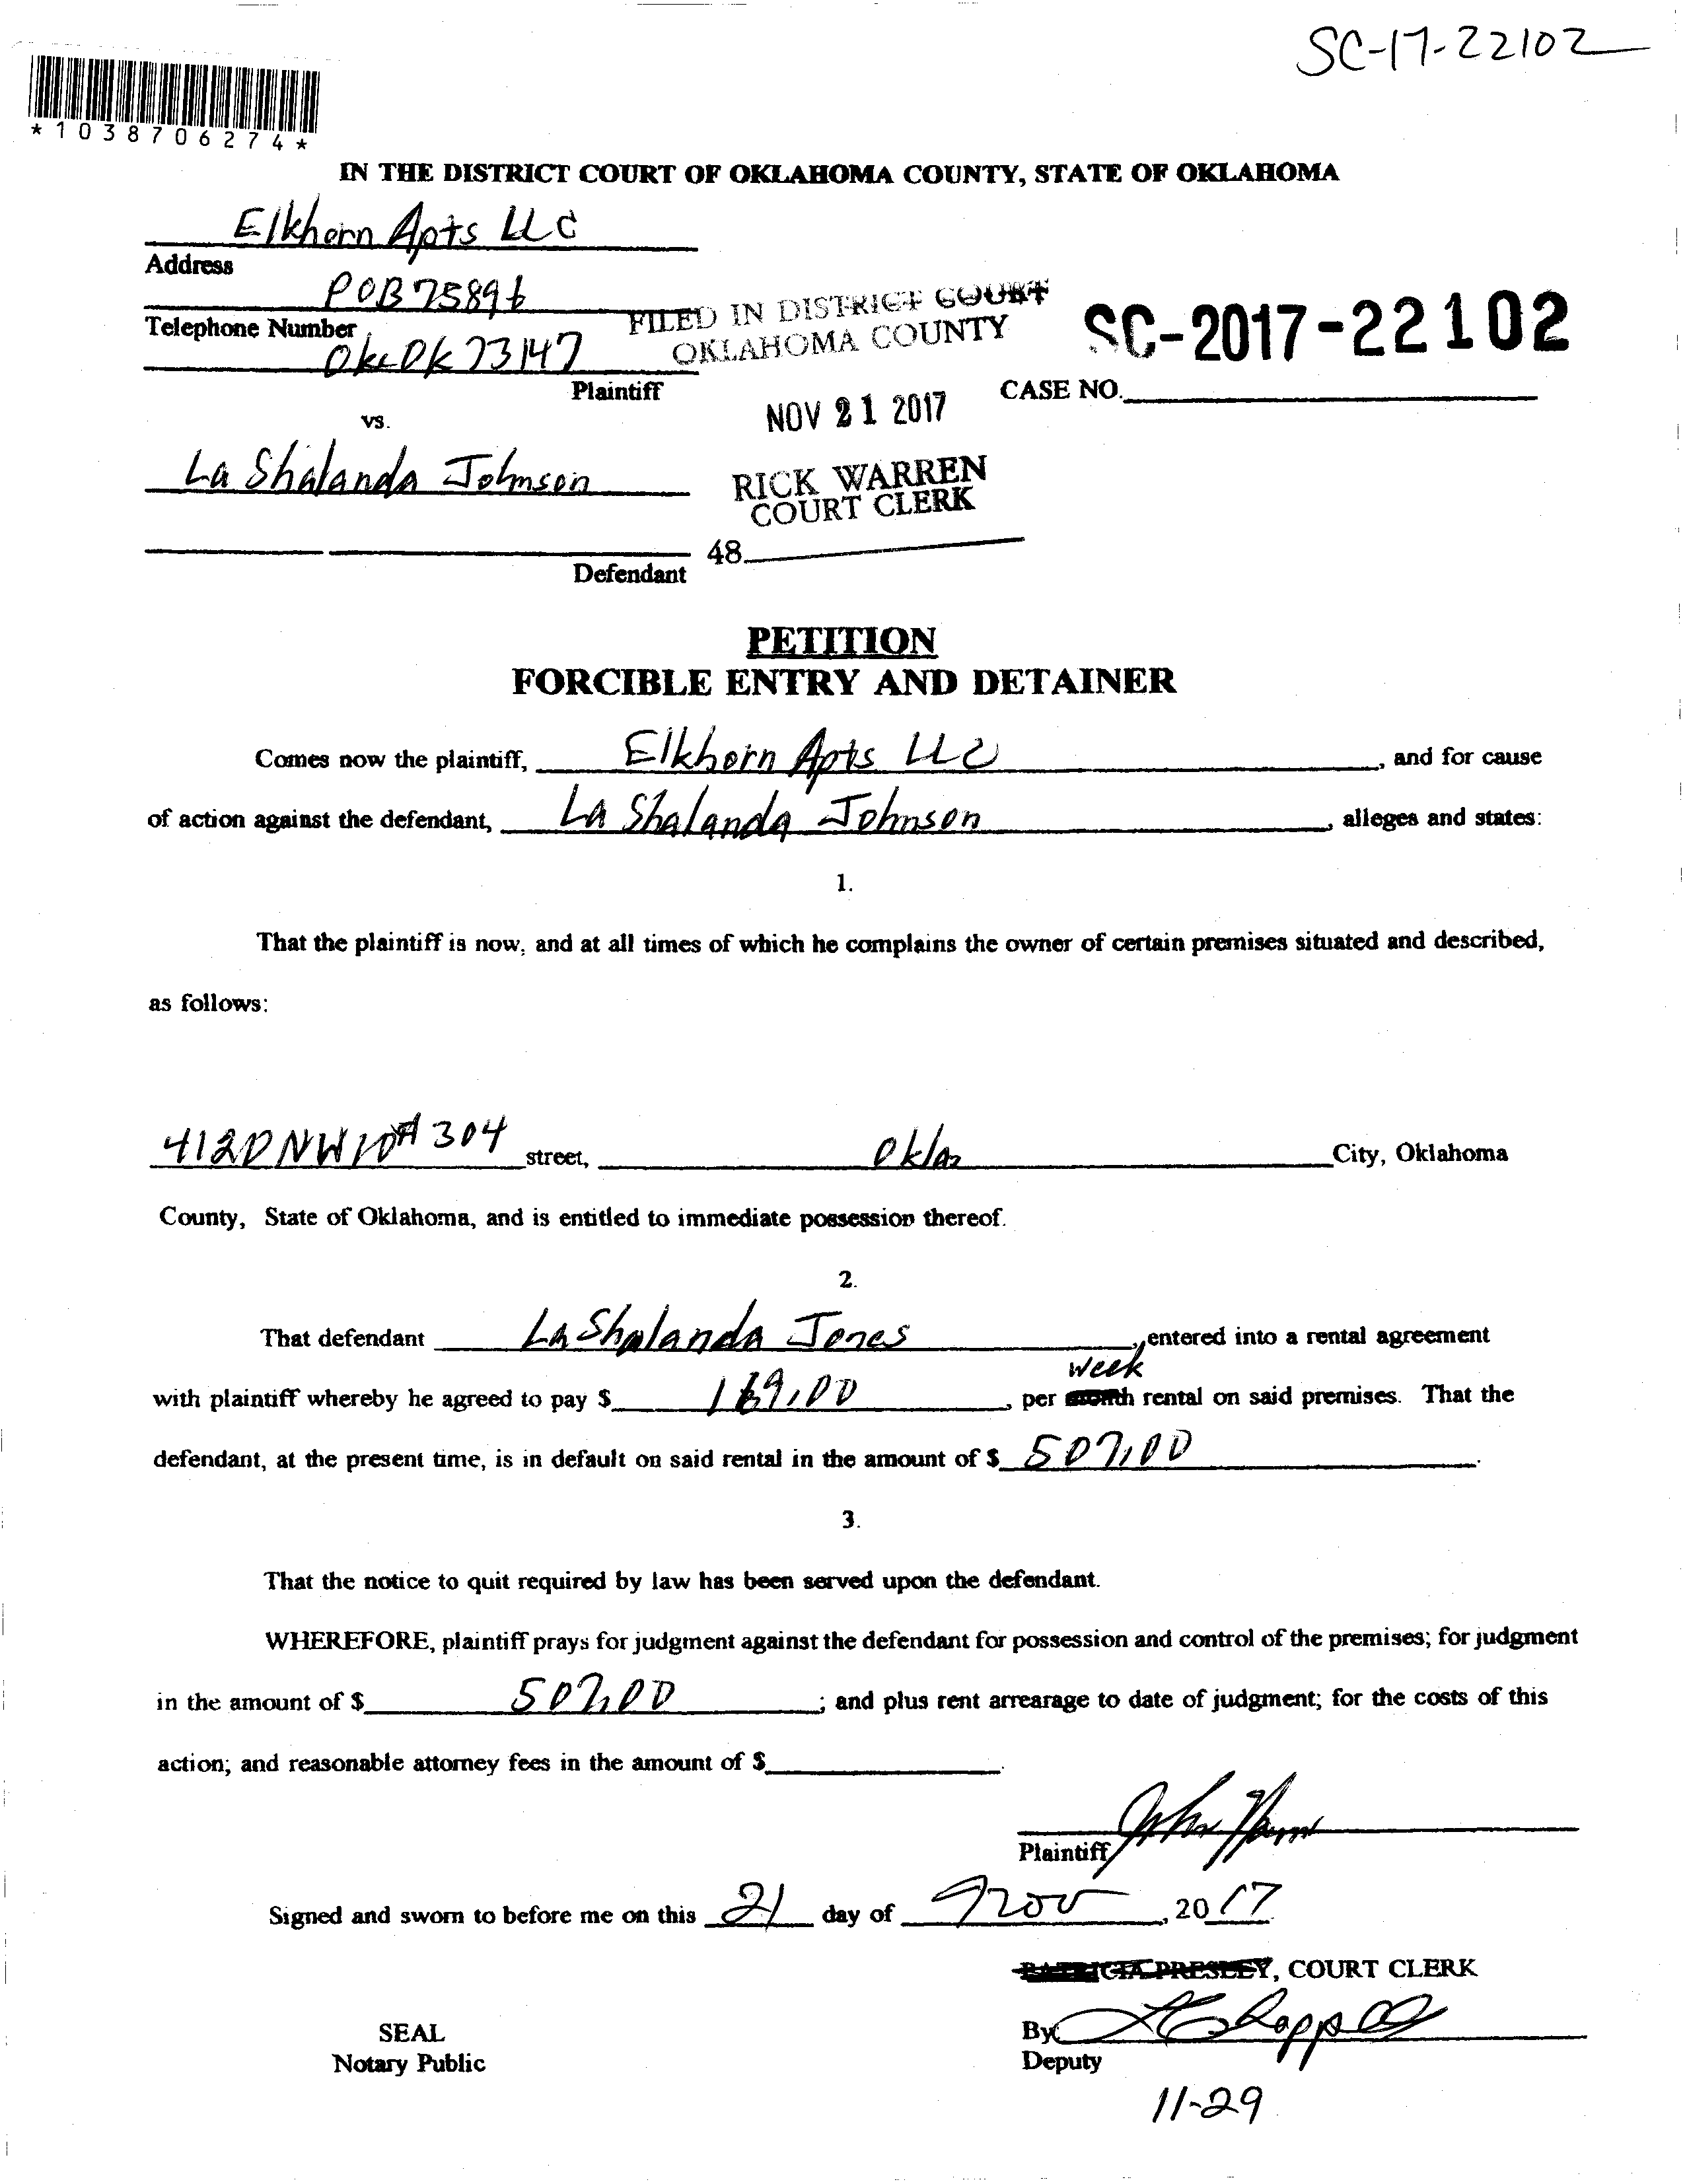 SC-17-22102
*1038706274*
IN THE DISTRICT COURT OF OKLAHOMA COUNTY, STATE OF OKLAHOMA
Elkhorn Apts LLC
Address
POB 75896
Telephone Number
Okc Ok 73147
Plaintiff
FILED IN DISTRICT COURT
OKLAHOMA COUNTY
SC-2017-22102
CASE NO.
NOV 21 2017
vs.
La Shalanda Johnson
RICK WARREN
COURT CLERK
48
Defendant
PETITION
FORCIBLE ENTRY AND DETAINER
Comes now the plaintiff, Elkhorn Apts LLC, and for cause
of action against the defendant, La Shalanda Johnson, alleges and states:
1.
That the plaintiff is now, and at all times of which he complains the owner of certain premises situated and described,
as follows:
4120 NW 10 # 304 street, Okla City, Oklahoma
County, State of Oklahoma, and is entitled to immediate possession thereof.
2.
That defendant La Shalanda Jones, entered into a rental agreement
week
with plaintiff whereby he agreed to pay $ 169.00, per month rental on said premises. That the
defendant, at the present time, is in default on said rental in the amount of $ 507.00.
3.
That the notice to quit required by law has been served upon the defendant.
WHEREFORE, plaintiff prays for judgment against the defendant for possession and control of the premises; for judgment
in the amount of $ 507.00; and plus rent arrearage to date of judgment; for the costs of this
action; and reasonable attorney fees in the amount of $
Plaintiff John
Signed and sworn to before me on this 21 day of Nov, 2017
PATRICIA PRESLEY, COURT CLERK
SEAL
By
Notary Public
Deputy
11-29